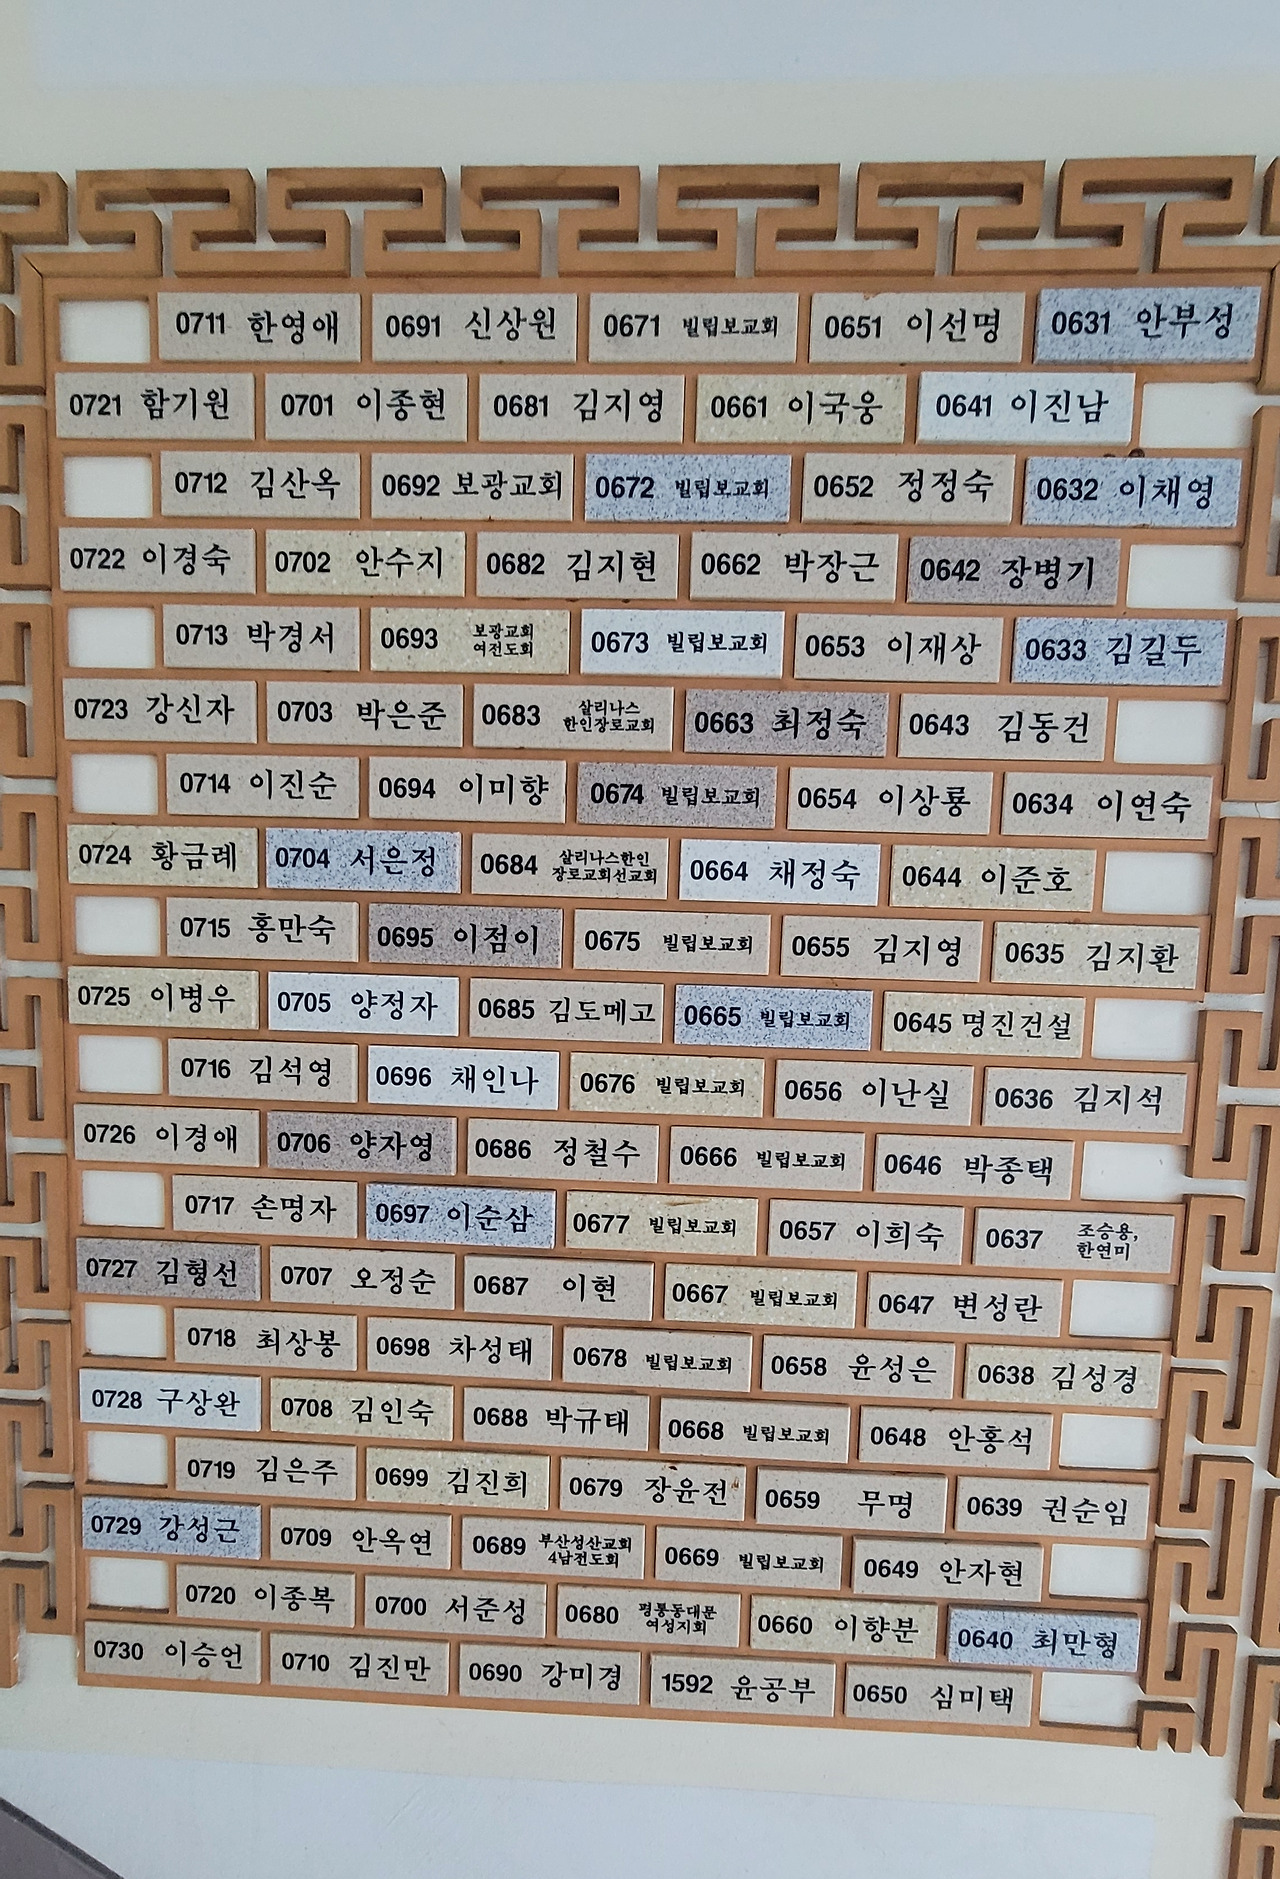 0711 한영애 0691 신상원 0671 빌립보교회 0651 이선명 0631 안부성
0721 함기원 0701 이종현 0681 김지영 0661 이국웅 0641 이진남
0712 김산옥 0692 보광교회 0672 빌립보교회 0652 정정숙 0632 이채영
0722 이경숙 0702 안수지 0682 김지현 0662 박장근 0642 장병기
0713 박경서 0693 보광교회 여전도회 0673 빌립보교회 0653 이재상 0633 김길두
0723 강신자 0703 박은준 0683 살리나스 한인장로교회 0663 최정숙 0643 김동건
0714 이진순 0694 이미향 0674 빌립보교회 0654 이상룡 0634 이연숙
0724 황금례 0704 서은정 0684 살리나스한인 장로교회선교회 0664 채정숙 0644 이준호
0715 홍만숙 0695 이점이 0675 빌립보교회 0655 김지영 0635 김지환
0725 이병우 0705 양정자 0685 김도메고 0665 빌립보교회 0645 명진건설
0716 김석영 0696 채인나 0676 빌립보교회 0656 이난실 0636 김지석
0726 이경애 0706 양자영 0686 정철수 0666 빌립보교회 0646 박종택
0717 손명자 0697 이순삼 0677 빌립보교회 0657 이희숙 0637 조승용, 한연미
0727 김형선 0707 오정순 0687 이현 0667 빌립보교회 0647 변성란
0718 최상봉 0698 차성태 0678 빌립보교회 0658 윤성은 0638 김성경
0728 구상완 0708 김인숙 0688 박규태 0668 빌립보교회 0648 안홍석
0719 김은주 0699 김진희 0679 장윤전 0659 무명 0639 권순임
0729 강성근 0709 안옥연 0689 부산성산교회 4남전도회 0669 빌립보교회 0649 안자현
0720 이종복 0700 서준성 0680 평통동대문 여성지회 0660 이향분 0640 최만형
0730 이승언 0710 김진만 0690 강미경 1592 윤공부 0650 심미택